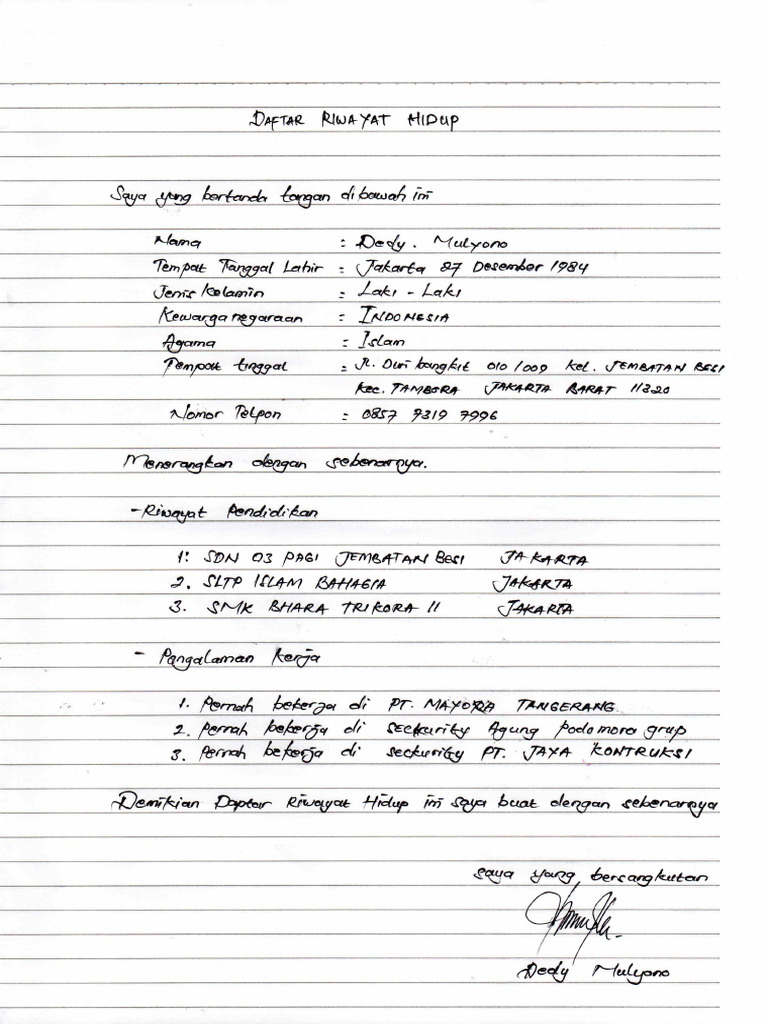 DAFTAR RIWAYAT HIDUP
Saya yang bertanda tangan dibawah ini
Nama : Dedy. Mulyono
Tempat Tanggal Lahir : Jakarta 27 Desember 1984
Jenis Kelamin : Laki - Laki
Kewarganegaraan : INDONESIA
Agama : Islam
Tempat tinggal : Jl. Duri bangkit 010/009 Kel. JEMBATAN BESI
Kec. TAMBORA JAKARTA BARAT 11320
Nomor Telpon : 0857 7319 7996
Menerangkan dengan sebenarnya.
- Riwayat Pendidikan
1. SDN 03 PAGI JEMBATAN BESI JAKARTA
2. SLTP ISLAM BAHAGIA JAKARTA
3. SMK BHARA TRIKORA II JAKARTA
- Pangalaman Kerja
1. Pernah bekerja di PT. MAYORA TANGERANG
2. Pernah bekerja di seckurity Agung Podomoro grup
3. Pernah bekerja di seckurity PT. JAYA KONTRUKSI
Demikian Daptar Riwayat Hidup ini saya buat dengan sebenarnya
saya yang bersangkutan
Dedy Mulyono